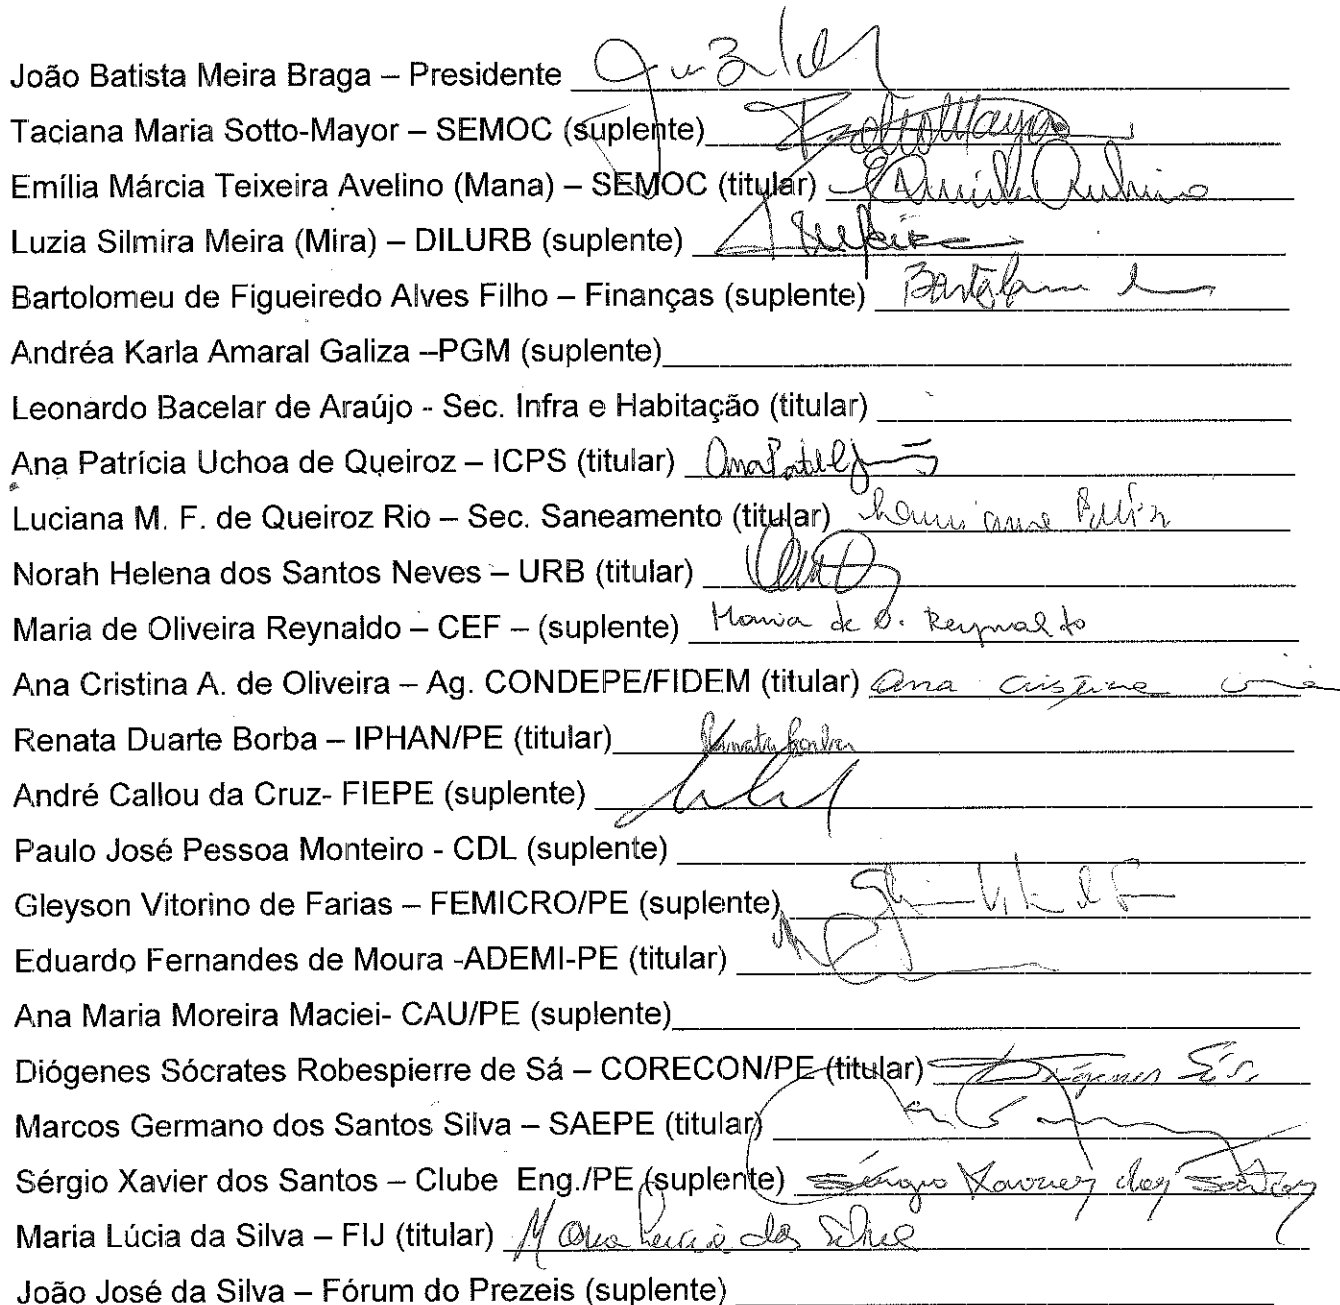 João Batista Meira Braga – Presidente
Taciana Maria Sotto-Mayor – SEMOC (suplente) SottoMayor
Emília Márcia Teixeira Avelino (Mana) – SEMOC (titular)
Luzia Silmira Meira (Mira) – DILURB (suplente)
Bartolomeu de Figueiredo Alves Filho – Finanças (suplente)
Andréa Karla Amaral Galiza –PGM (suplente)
Leonardo Bacelar de Araújo - Sec. Infra e Habitação (titular)
Ana Patrícia Uchoa de Queiroz – ICPS (titular)
Luciana M. F. de Queiroz Rio – Sec. Saneamento (titular)
Norah Helena dos Santos Neves – URB (titular)
Maria de Oliveira Reynaldo – CEF – (suplente) Maria de O. Reynaldo
Ana Cristina A. de Oliveira – Ag. CONDEPE/FIDEM (titular) Ana Cristina
Renata Duarte Borba – IPHAN/PE (titular) Renata Borba
André Callou da Cruz- FIEPE (suplente)
Paulo José Pessoa Monteiro - CDL (suplente)
Gleyson Vitorino de Farias – FEMICRO/PE (suplente)
Eduardo Fernandes de Moura -ADEMI-PE (titular)
Ana Maria Moreira Maciei- CAU/PE (suplente)
Diógenes Sócrates Robespierre de Sá – CORECON/PE (titular) Diógenes
Marcos Germano dos Santos Silva – SAEPE (titular)
Sérgio Xavier dos Santos – Clube Eng./PE (suplente) Sérgio Xavier dos Santos
Maria Lúcia da Silva – FIJ (titular) Maria Lucia da Silva
João José da Silva – Fórum do Prezeis (suplente)